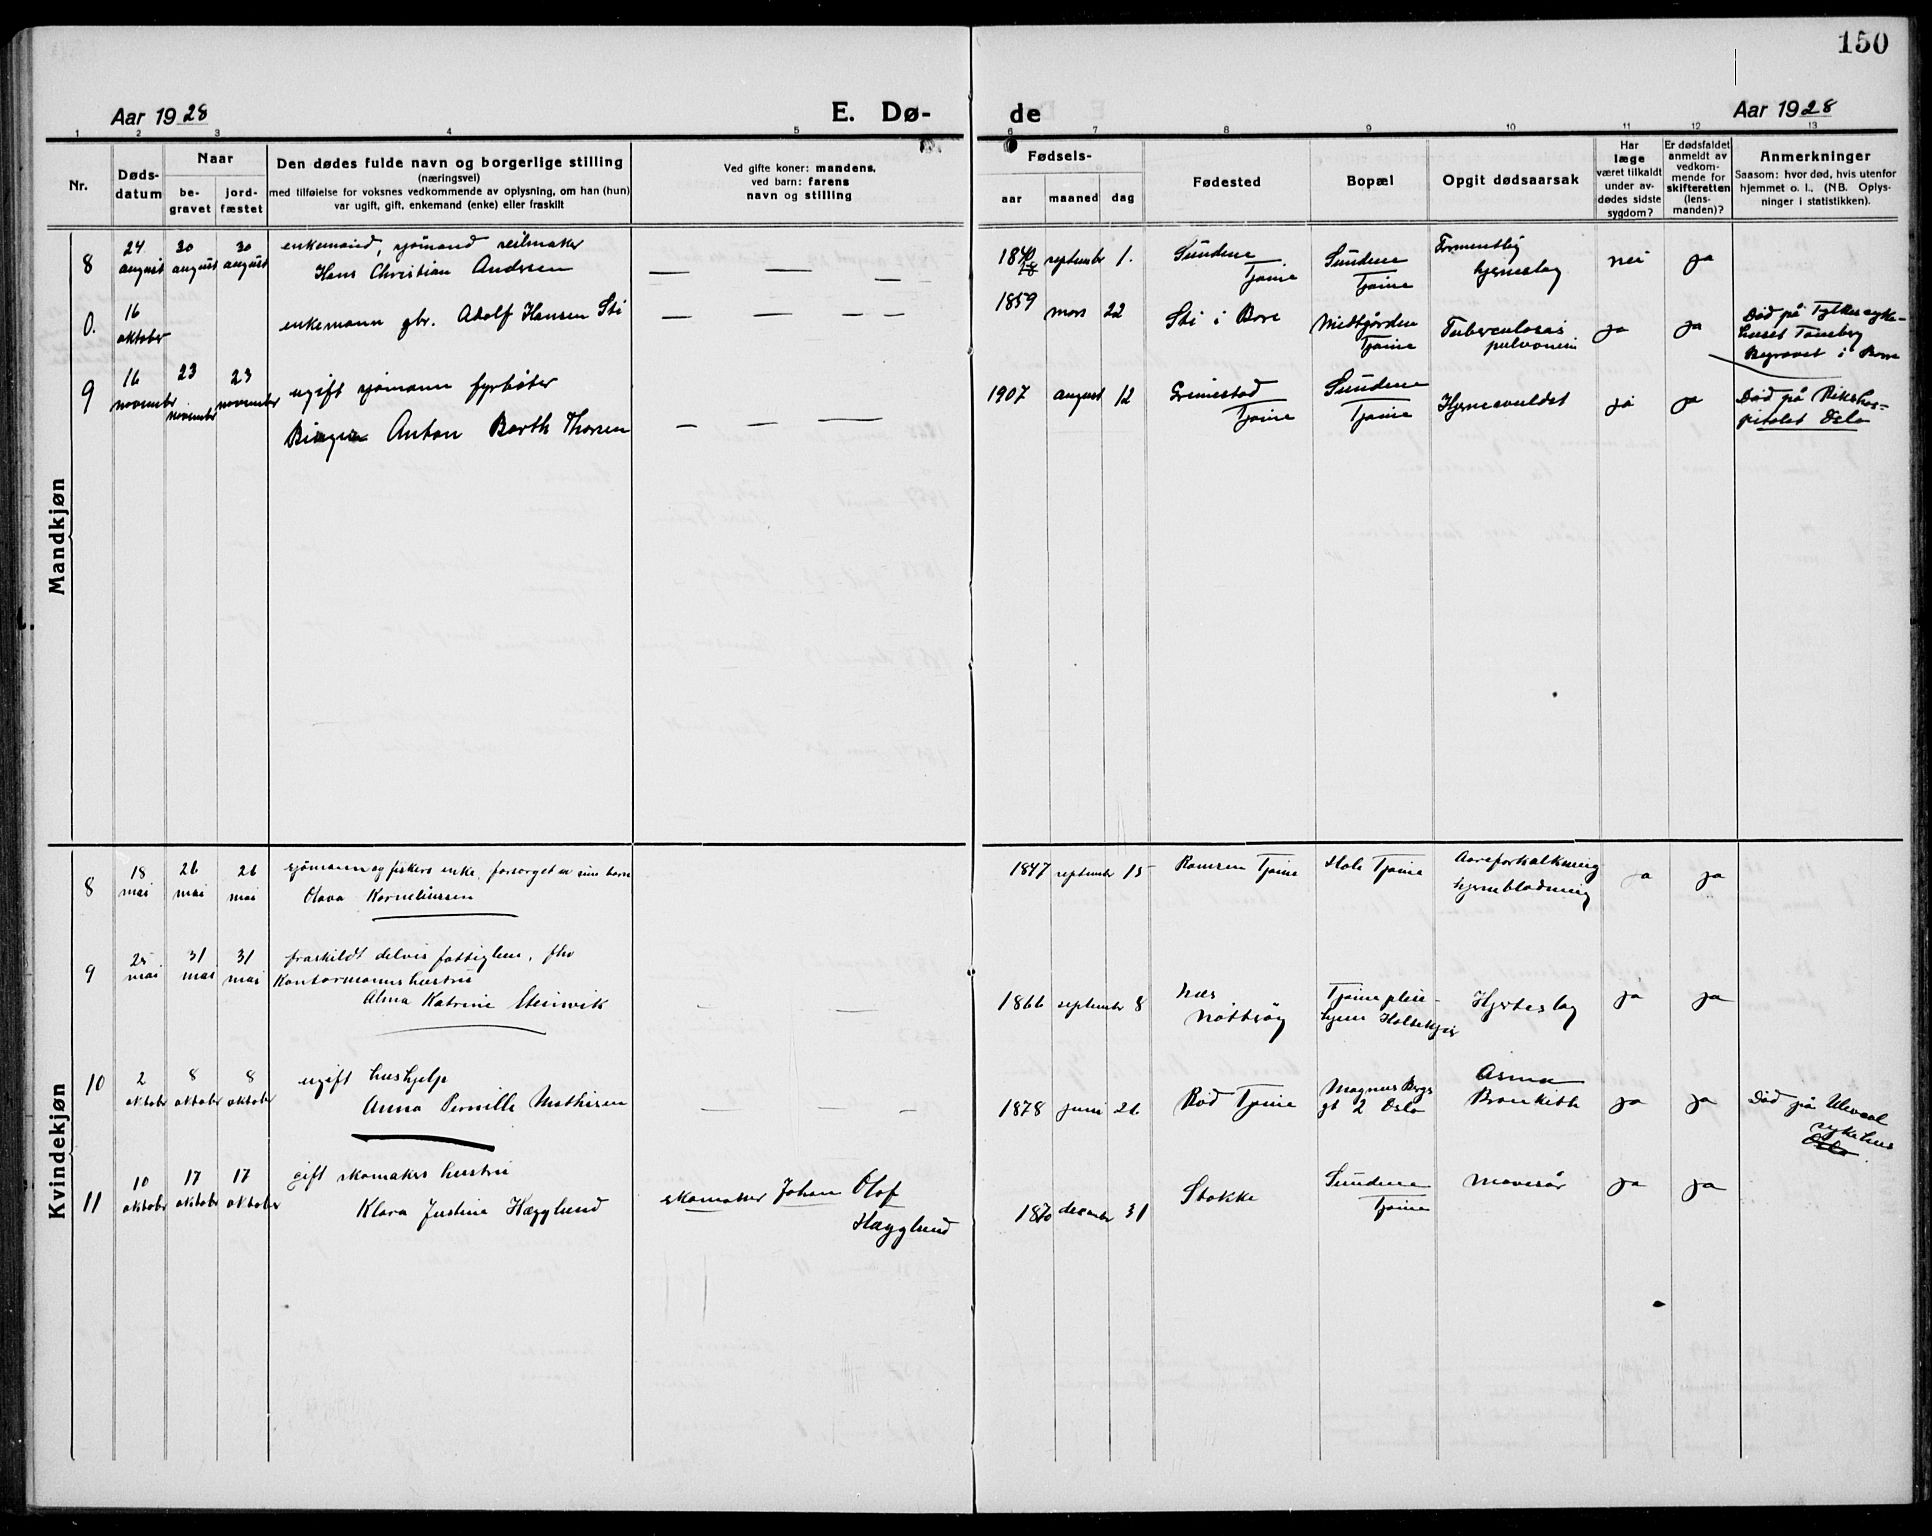 150
Aar 1928
E. Dø-
de
Aar 1928
1 2 3 4 5 6 7 8 9 10 11 12 13
Nr.
Døds-
datum
Naar
be-
gravet
jord-
fæstet
Den dødes fulde navn og borgerlige stilling
(næringsvei)
med tilføielse for voksnes vedkommende av oplysning, om han (hun)
var ugift, gift, enkemand (enke) eller fraskilt
Ved gifte koner: mandens,
ved barn: farens
navn og stilling
Fødsels-
aar
maaned
dag
Fødested
Bopæl
Opgit dødsaarsak
Har
læge
været tilkaldt
under av-
dødes sidste
sygdom?
Er dødsfaldet
anmeldt av
vedkom-
mende for
skifteretten
(lens-
manden)?
Anmerkninger
Saasom: hvor død, hvis utenfor
hjemmet o. l., (NB. Oplys-
ninger i statistikken).
Mandkjøn
8
24
august
30
august
30
august
enkemand, sjømand seilmaker
Hans Christian Andersen
— — —
september 1.
Sundene
Tjøme
Sundene
Tjøme
hjerneslag
nei
ja
0.
16
oktober
enkemann gbr. Adolf Hansen Sti
— — — —
1859
mars
22
Sti i Borre
Midtgården
Tjøme
Tuberculosis
ja
ja
Død på Fylkessyke-
huset Tønsberg
Begravet i Borre
9
16
november
23
november
23
november
ugift sjømann fyrbøter
Birger Anton Barth Thorsen
— — —
1907
august
12
Grimestad
Tjøme
Sundene
Tjøme
Hjernesvulst
ja
ja
Død på Rikshos-
pitalet Oslo
Kvindekjøn
8
18
mai
26
mai
26
mai
sjømann og fiskers enke, forsørget av sine barn
Olava Korneliussen
1847
september 15
Ramsen Tjøme
Hole Tjøme
Aareforkalkning
hjerneblødning
ja
ja
9
25
mai
31
mai
31
mai
fraskildt delvis fattiglem, fhv
Kontormanns hustru
Alma Katrine Steinvik
— —
1866
september 8
Næs
Nøtterøy
Tjøme pleie-
hjem Holtekjær
Hjerteslag
ja
ja
10
2
oktober
8
oktober
8
oktober
ugift hushjelp
Anna Pernille Mathisen
— — —
1878
juni
26
Rød Tjøme
Magnus Bergs
gt 2 Oslo
Asma
ja
ja
Død på Ulevaal
sykehus
Oslo
11
10
oktober
17
oktober
17
oktober
gift skomakers hustru
Klara Justine Hægglund
skomaker Johan Olof
Hægglund
1870
december 31
Stokke
Sundene
Tjøme
Mavesår
ja
ja